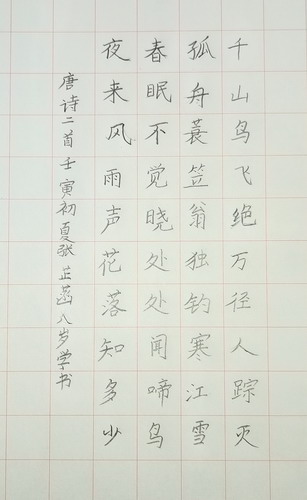 千山鸟飞绝万径人踪灭
孤舟蓑笠翁独钓寒江雪
春眠不觉晓处处闻啼鸟
夜来风雨声花落知多少
唐诗二首壬寅初夏张芷菡八岁学书